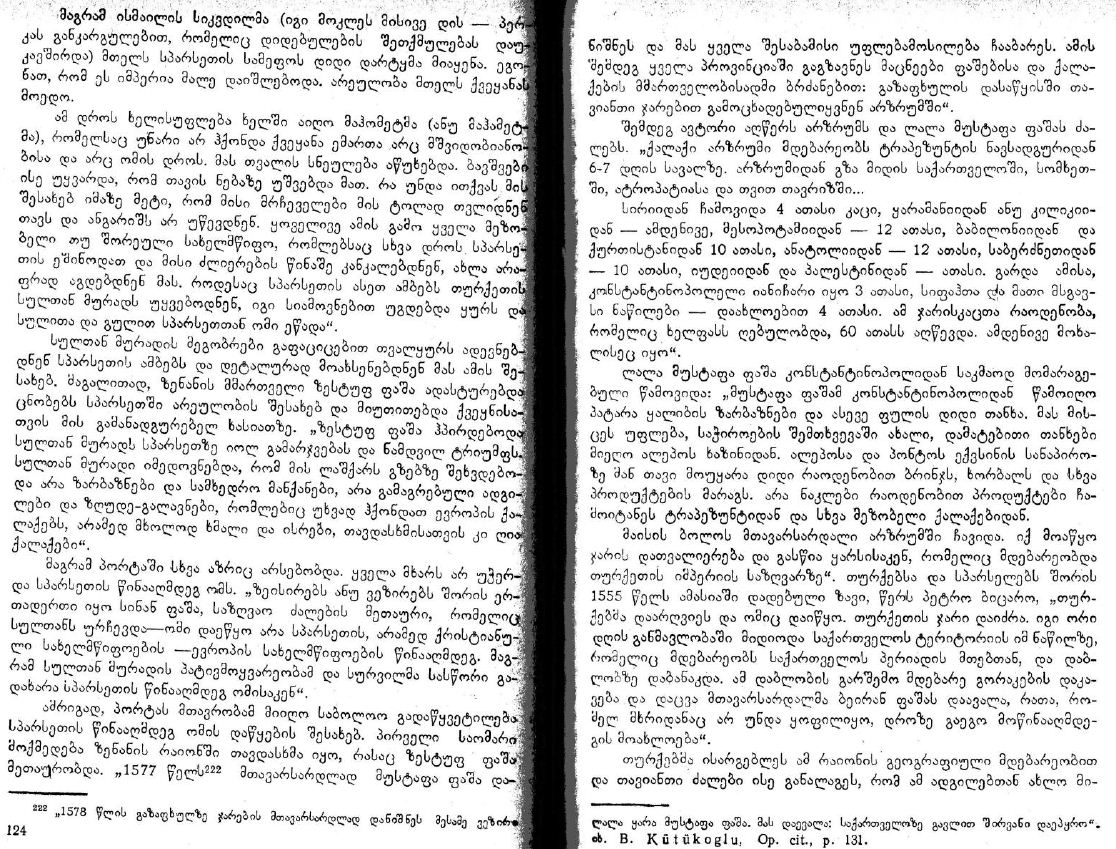 მაგრამ ისმაილის სიკვდილმა (იგი მოკლეს მისივე დის — პერ-
კას განკარგულებით, რომელიც დიდებულების შეთქმულებას დაუ-
კავშირდა) მთელს სპარსეთის სამეფოს დიდი დარტყმა მიაყენა. ეგო-
ნათ, რომ ეს იმპერია მალე დაიშლებოდა. არეულობა მთელს ქვეყანას
მოედო.
ამ დროს ხელისუფლება ხელში აიღო მაჰომეტმა (ანუ მაჰამეტ-
მა), რომელსაც უნარი არ ჰქონდა ქვეყანა ემართა არც მშვიდობიანო-
ბისა და არც ომის დროს. მას თვალის სნეულება აწუხებდა. ბავშვები
ისე უყვარდა, რომ თავის ნებაზე უშვებდა მათ. რა უნდა ითქვას მის
შესახებ იმაზე მეტი, რომ მისი მრჩეველები მის ტოლად თვლიდნენ
თავს და ანგარიშს არ უწევდნენ. ყოველივე ამის გამო ყველა მეზო-
ბელი თუ შორეული სახელმწიფო, რომლებსაც სხვა დროს სპარსე-
თის ეშინოდათ და მისი ძლიერების წინაშე კანკალებდნენ, ახლა არა-
ფრად აგდებდნენ მას. როდესაც სპარსეთის ასეთ ამბებს თურქეთის
სულთან მურადს უყვებოდნენ, იგი სიამოვნებით უგდებდა ყურს და
სულითა და გულით სპარსეთთან ომი ეწადა“.
სულთან მურადის მეგობრები გაფაციცებით თვალყურს ადევნებ-
დნენ სპარსეთის ამბებს და დეტალურად მოახსენებდნენ მას ამის შე-
სახებ. მაგალითად, ზენანის მმართველი ზესტუფ ფაშა ადასტურებდა
ცნობებს სპარსეთში არეულობის შესახებ და მიუთითებდა ქვეყნისა-
თვის მის გამანადგურებელ ხასიათზე. „ზესტუფ ფაშა ჰპირდებოდა
სულთან მურადს სპარსეთზე იოლ გამარჯვებას და ნამდვილ ტრიუმფს.
სულთან მურადი იმედოვნებდა, რომ მის ლაშქარს გზებზე შეხვდებო-
და არა ზარბაზნები და სამხედრო მანქანები, არა გამაგრებული ადგი-
ლები და ზღუდე-გალავნები, რომლებიც უხვად ჰქონდათ ევროპის ქა-
ლაქებს, არამედ მხოლოდ ხმალი და ისრები, თავდასხმისათვის კი ღია
ქალაქები“.
მაგრამ პორტაში სხვა აზრიც არსებობდა. ყველა მხარს არ უჭერ-
და სპარსეთის წინააღმდეგ ომს. „ზეისირებს ანუ ვეზირებს შორის ერ-
თადერთი იყო სინან ფაშა, საზღვაო ძალების მეთაური, რომელიც
სულთანს ურჩევდა—ომი დაეწყო არა სპარსეთის, არამედ ქრისტიანუ-
ლი სახელმწიფოების —ევროპის სახელმწიფოების წინააღმდეგ. მაგ-
რამ სულთან მურადის პატივმოყვარეობამ და სურვილმა სასწორი გა-
დახარა სპარსეთის წინააღმდეგ ომისაკენ“.
ამრიგად, პორტას მთავრობამ მიიღო საბოლოო გადაწყვეტილება
სპარსეთის წინააღმდეგ ომის დაწყების შესახებ. პირველი საომარი
მოქმედება ზენანის რაიონში თავდასხმა იყო, რასაც ზესტუფ ფაშა
მეთაურობდა. „1577 წელს²²² მთავარსარდლად მუსტაფა ფაშა და-
²²² „1578 წლის გაზაფხულზე ჯარების მთავარსარდლად დანიშნეს მესამე ვეზირი
124
ნიშნეს და მას ყველა შესაბამისი უფლებამოსილება ჩააბარეს. ამის
შემდეგ ყველა პროვინციაში გაგზავნეს მაცნეები ფაშებისა და ქალა-
ქების მმართველობისადმი ბრძანებით: გაზაფხულის დასაწყისში თა-
ვიანთი ჯარებით გამოცხადებულიყვნენ არზრუმში“.
შემდეგ ავტორი აღწერს არზრუმს და ლალა მუსტაფა ფაშას ძა-
ლებს. „ქალაქი არზრუმი მდებარეობს ტრაპეზუნტის ნავსადგურიდან
6-7 დღის სავალზე. არზრუმიდან გზა მიდის საქართველოში, სომხეთ-
ში, ატროპატიასა და თვით თავრიზში...
სირიიდან ჩამოვიდა 4 ათასი კაცი, ყარამანიიდან ანუ კილიკიი-
დან — ამდენივე, მესოპოტამიიდან — 12 ათასი, ბაბილონიიდან და
ქურთისტანიდან 10 ათასი, ანატოლიიდან — 12 ათასი, საბერძნეთიდან
— 10 ათასი, იუდეიიდან და პალესტინიდან — ათასი. გარდა ამისა,
კონსტანტინოპოლელი იანიჩარი იყო 3 ათასი, სიფაჰთა და მათი მსგავ-
სი ნაწილები — დაახლოებით 4 ათასი. ამ ჯარისკაცთა რაოდენობა,
რომელიც ხელფასს ღებულობდა, 60 ათასს აღწევდა. ამდენივე მოხა-
ლისეც იყო“.
ლალა მუსტაფა ფაშა კონსტანტინოპოლიდან საკმაოდ მომარაგე-
ბული წამოვიდა: „მუსტაფა ფაშამ კონსტანტინოპოლიდან წამოიღო
პატარა ყალიბის ზარბაზნები და ასევე ფულის დიდი თანხა. მას მის-
ცეს უფლება, საჭიროების შემთხვევაში ახალი, დამატებითი თანხები
მიეღო ალეპოს ხაზინიდან. ალეპოსა და პონტოს ექვსინის სანაპირო-
ზე მან თავი მოუყარა დიდი რაოდენობით ბრინჯს, ხორბალს და სხვა
პროდუქტების მარაგს. არა ნაკლები რაოდენობით პროდუქტები ჩა-
მოიტანეს ტრაპეზუნტიდან და სხვა მეზობელი ქალაქებიდან.
მაისის ბოლოს მთავარსარდალი არზრუმში ჩავიდა. იქ მოაწყო
ჯარის დათვალიერება და გასწია ყარსისაკენ, რომელიც მდებარეობდა
თურქეთის იმპერიის საზღვარზე“. თურქებსა და სპარსელებს შორის
1555 წელს ამასიაში დადებული ზავი, წერს პეტრო ბიცარო, „თურ-
ქებმა დაარღვიეს და ომიც დაიწყო. თურქეთის ჯარი დაიძრა. იგი ორი
დღის განმავლობაში მიდიოდა საქართველოს ტერიტორიის იმ ნაწილზე,
რომელიც მდებარეობს საქართველოს პერიადის მთებთან, და დაბ-
ლობზე დაბანაკდა. ამ დაბლობის გარშემო მდებარე გორაკების დაკა-
ვება და დაცვა მთავარსარდალმა ბეირან ფაშას დაავალა, რათა, რო-
მელ მხრიდანაც არ უნდა ყოფილიყო, დროზე გაეგო მოწინააღმდე-
გის მოახლოება“.
თურქებმა ისარგებლეს ამ რაიონის გეოგრაფიული მდებარეობით
და თავიანთი ძალები ისე განალაგეს, რომ ამ ადგილებთან ახლო მი-
ლალა ყარა მუსტაფა ფაშა. მას დაევალა: საქართველოზე გავლით შირვანი დაეპყრო“.
იხ. B. Kütükoglu, Op. cit., p. 131.